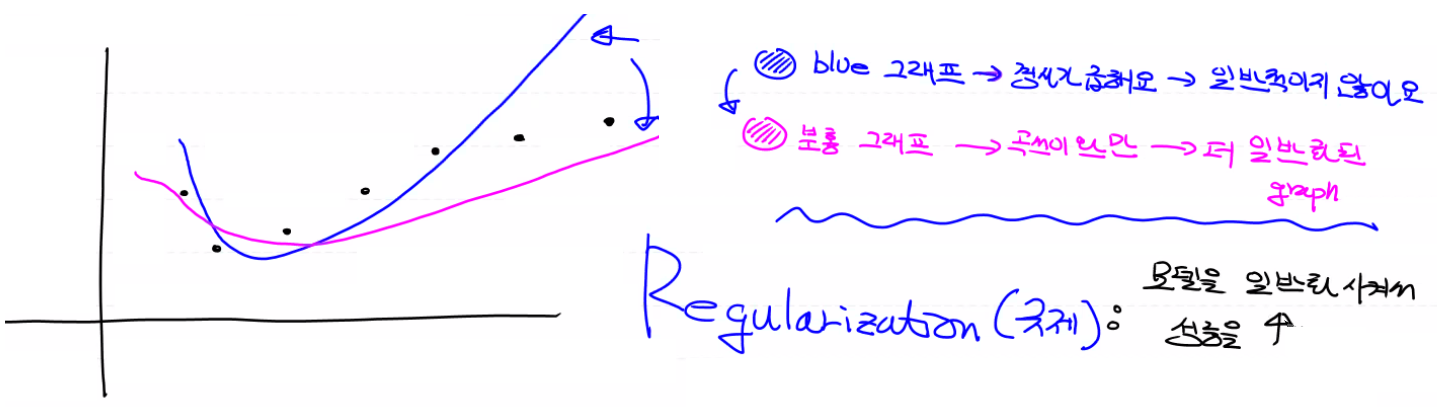 blue 그래프 → 경사가 급해요 → 일반적이지 않아요
분홍 그래프 → 곡선이 완만 → 더 일반화된
graph
Regularization (규제):
모델을 일반화 시켜서
성능을 ↑